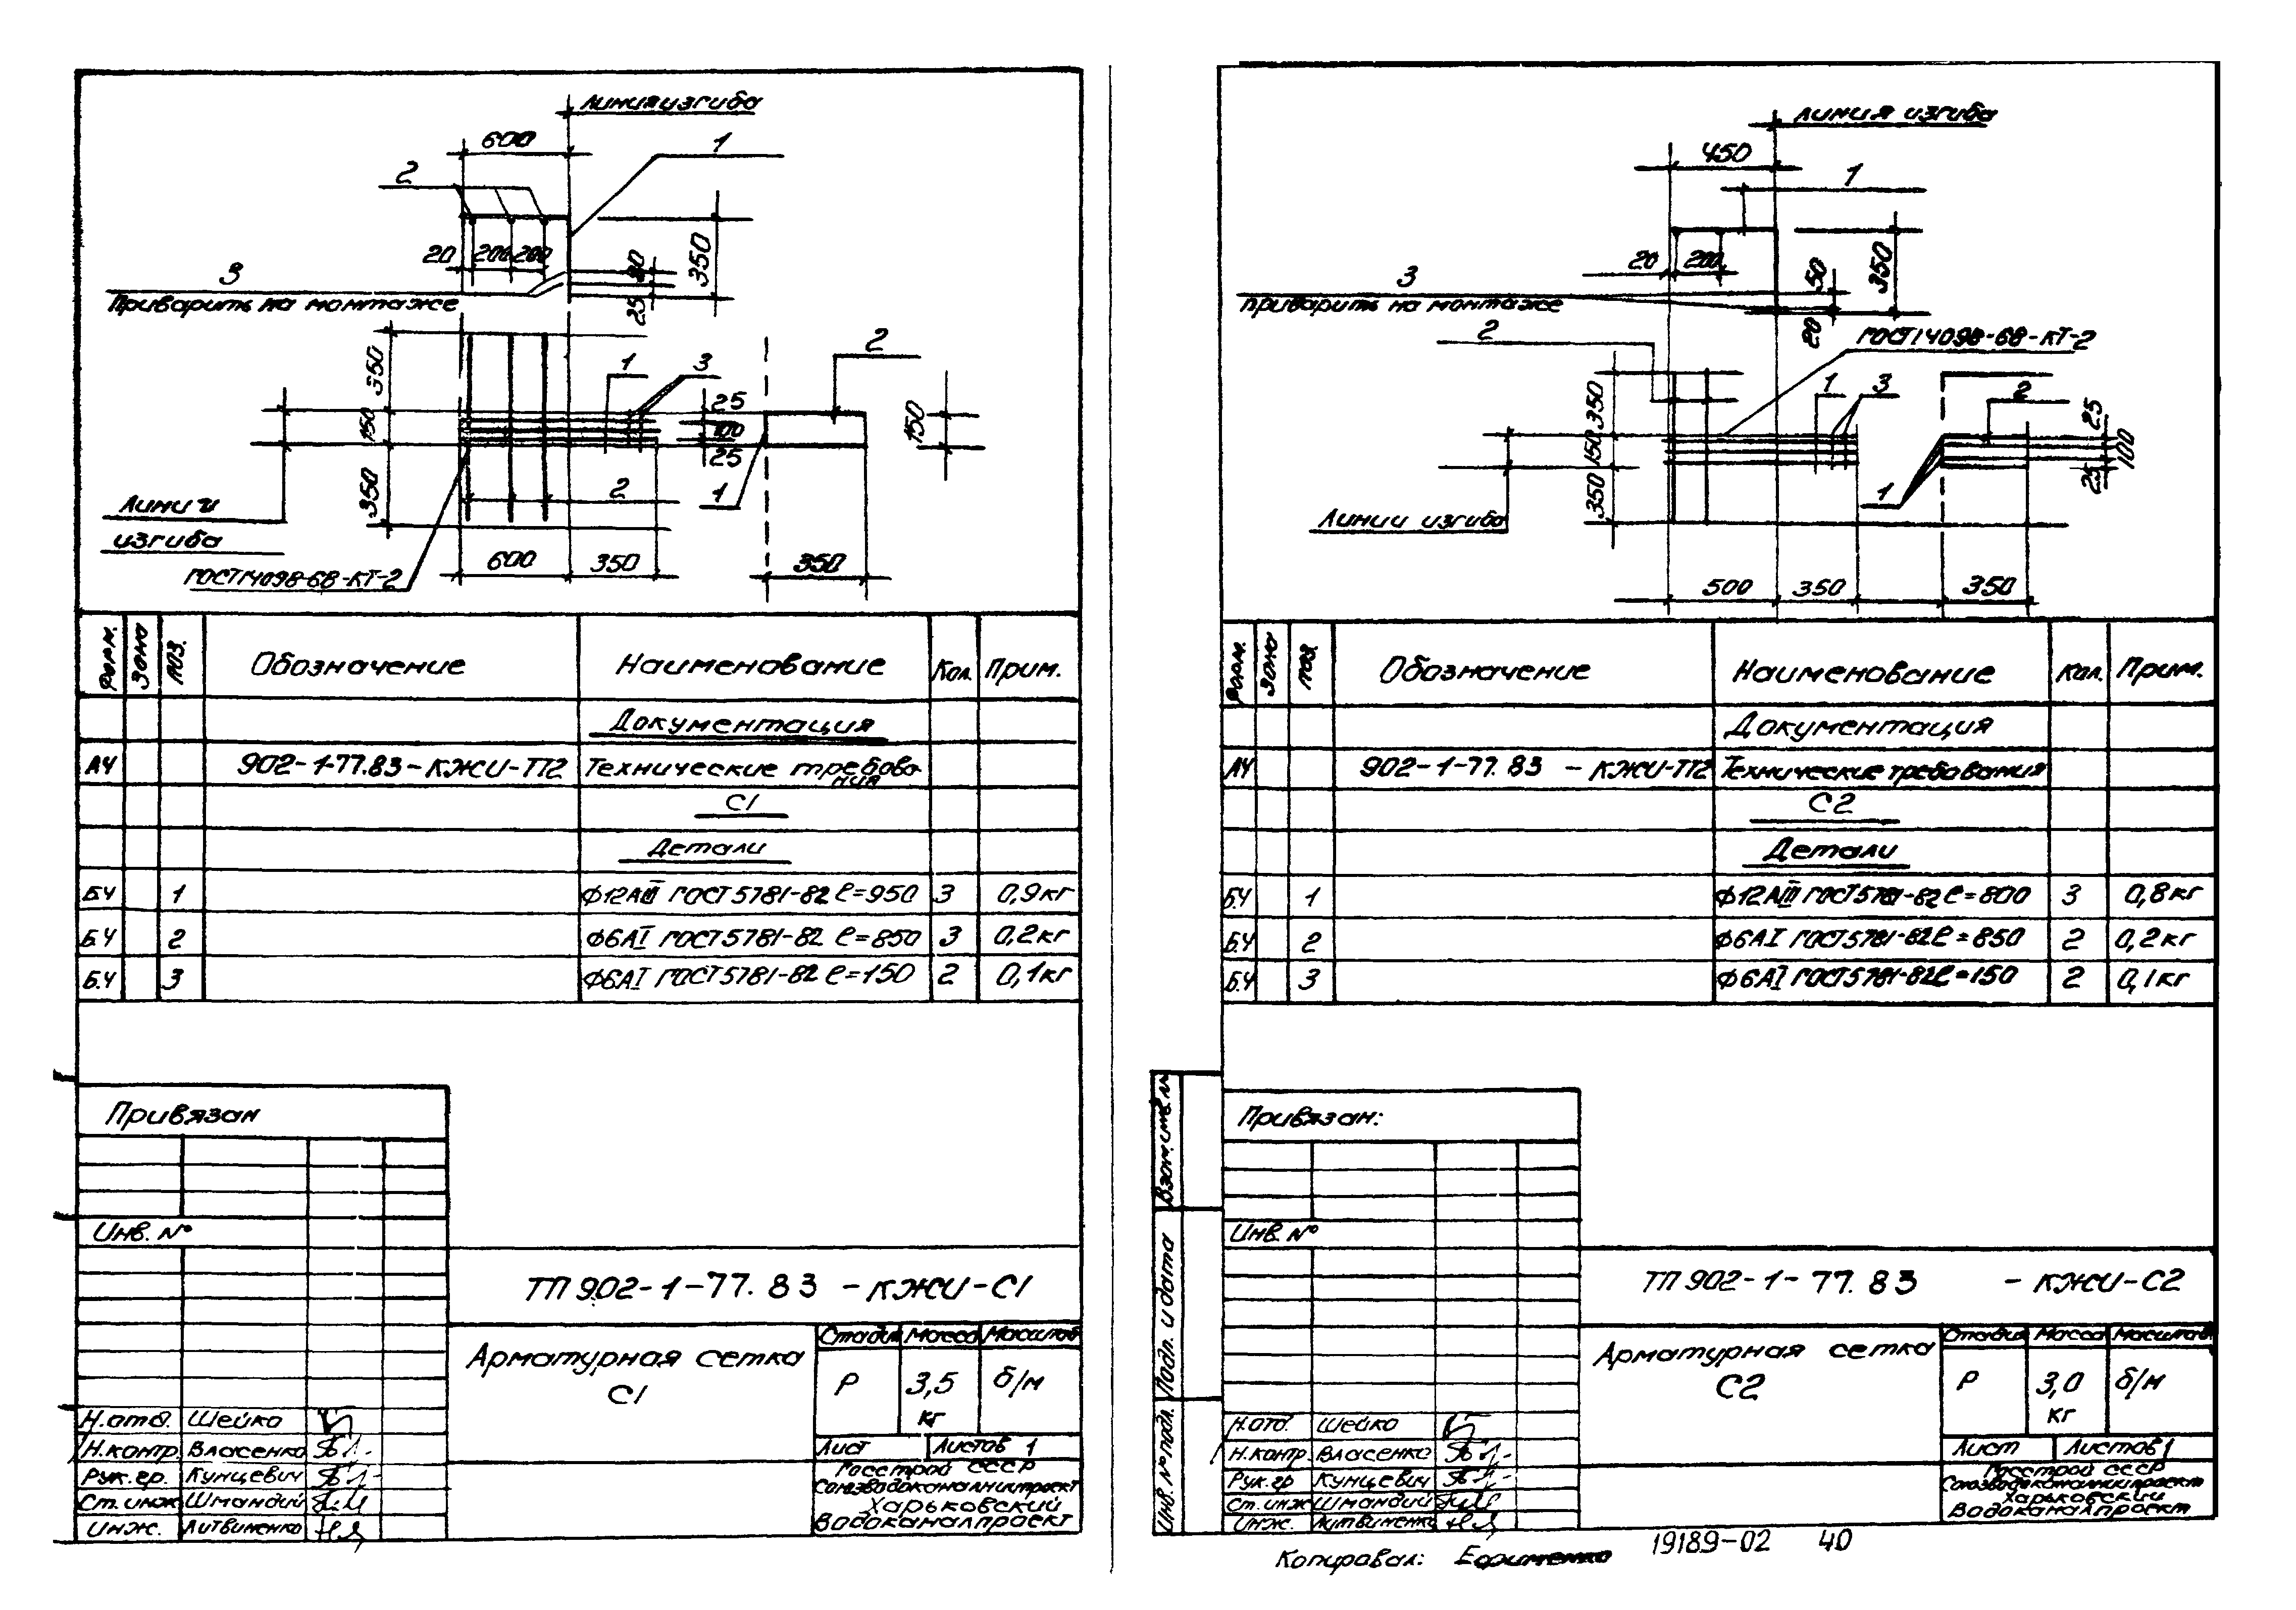 Линия изгиба
600
1
2
20
200
200
30
350
25
3
Приварить на монтаже
350
150
350
1
3
2
25
100
25
150
2
1
Линии
изгиба
ГОСТ14098-68-КТ-2
600
350
350
Форм.
Зона
Поз.
Обозначение
Наименование
Кол.
Прим.
Документация
А4 902-1-77.83-КЖИ-ТТ2 Технические требова-
ния
С1
Детали
Б4 1 Ф12АIII ГОСТ5781-82 ℓ=950 3 0,9кг
Б.4 2 Ф6АI ГОСТ5781-82 ℓ=850 3 0,2кг
Б.4 3 Ф6АI ГОСТ5781-82 ℓ=150 2 0,1кг
Привязан
Инв. №
ТП 902-1-77.83 -КЖИ-С1
Арматурная сетка
С1
Стадия Масса Масштаб
Р 3,5 б/м
кг
Лист Листов 1
Госстрой СССР
Союзводоканалниипроект
Харьковский
Водоканалпроект
Н.отд. Шейко
Н.контр. Власенко
Рук.гр. Кунцевич
Ст.инж Шмандий
Инж. Литвиненко
Линия изгиба
450
1
20
200
3
50
350
20
Приварить на монтаже
2
ГОСТ14098-68-КТ-2
350
150
350
1
3
2
25
100
25
1
Линии изгиба
500
350
350
Форм.
Зона
Поз.
Обозначение
Наименование
Кол.
Прим.
Документация
А4 902-1-77.83 -КЖИ-ТТ2 Технические требования
С2
Детали
Б.4 1 Ф12АIII ГОСТ5781-82 ℓ=800 3 0,8кг
Б.4 2 Ф6АI ГОСТ5781-82 ℓ=850 2 0,2кг
Б.4 3 Ф6АI ГОСТ5781-82 ℓ=150 2 0,1кг
Взам.инв.№
Подп. и дата
Инв. № подл.
Привязан:
Инв. №
ТП 902-1-77.83 -КЖИ-С2
Арматурная сетка
С2
Стадия Масса Масштаб
Р 3,0 б/м
кг
Лист Листов 1
Госстрой СССР
Союзводоканалниипроект
Харьковский
Водоканалпроект
Н.отд. Шейко
Н.контр. Власенко
Рук.гр Кунцевич
Ст.инж Шмандий
Инж. Литвиненко
Копировал: Ефименко 19189-02 40